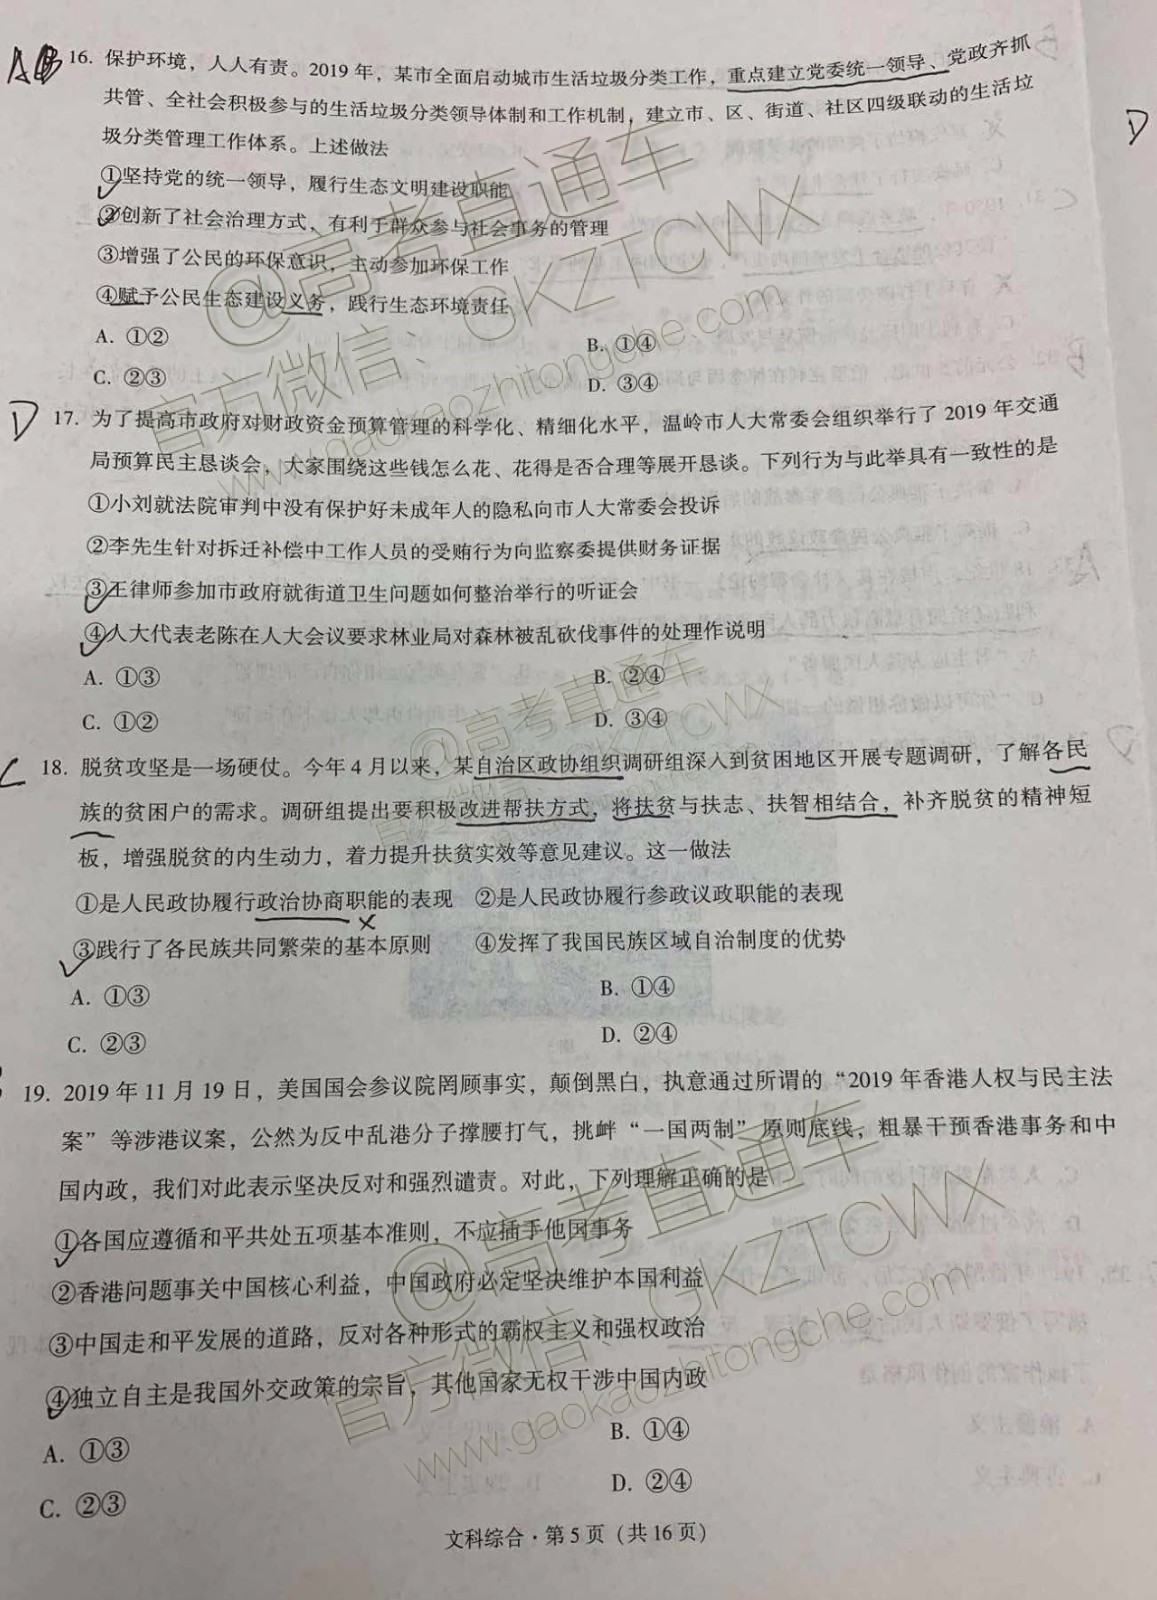 AB 16. 保护环境，人人有责。2019 年，某市全面启动城市生活垃圾分类工作，重点建立党委统一领导、党政齐抓
共管、全社会积极参与的生活垃圾分类领导体制和工作机制，建立市、区、街道、社区四级联动的生活垃
圾分类管理工作体系。上述做法
D
①坚持党的统一领导，履行生态文明建设职能
②创新了社会治理方式，有利于群众参与社会事务的管理
③增强了公民的环保意识，主动参加环保工作
④赋予公民生态建设义务，践行生态环境责任
A. ①②
B. ①④
C. ②③
D. ③④
D 17. 为了提高市政府对财政资金预算管理的科学化、精细化水平，温岭市人大常委会组织举行了 2019 年交通
局预算民主恳谈会，大家围绕这些钱怎么花、花得是否合理等展开恳谈。下列行为与此举具有一致性的是
①小刘就法院审判中没有保护好未成年人的隐私向市人大常委会投诉
②李先生针对拆迁补偿中工作人员的受贿行为向监察委提供财务证据
③王律师参加市政府就街道卫生问题如何整治举行的听证会
④人大代表老陈在人大会议要求林业局对森林被乱砍伐事件的处理作说明
A. ①③
B. ②④
C. ①②
D. ③④
C 18. 脱贫攻坚是一场硬仗。今年 4 月以来，某自治区政协组织调研组深入到贫困地区开展专题调研，了解各民
族的贫困户的需求。调研组提出要积极改进帮扶方式，将扶贫与扶志、扶智相结合，补齐脱贫的精神短
板，增强脱贫的内生动力，着力提升扶贫实效等意见建议。这一做法
①是人民政协履行政治协商职能的表现 ②是人民政协履行参政议政职能的表现
③践行了各民族共同繁荣的基本原则 ④发挥了我国民族区域自治制度的优势
A. ①③
B. ①④
C. ②③
D. ②④
19. 2019 年 11 月 19 日，美国国会参议院罔顾事实，颠倒黑白，执意通过所谓的“2019 年香港人权与民主法
案”等涉港议案，公然为反中乱港分子撑腰打气，挑衅“一国两制”原则底线，粗暴干预香港事务和中
国内政，我们对此表示坚决反对和强烈谴责。对此，下列理解正确的是
①各国应遵循和平共处五项基本准则，不应插手他国事务
②香港问题事关中国核心利益，中国政府必定坚决维护本国利益
③中国走和平发展的道路，反对各种形式的霸权主义和强权政治
④独立自主是我国外交政策的宗旨，其他国家无权干涉中国内政
A. ①③
B. ①④
C. ②③
D. ②④
文科综合·第 5 页（共 16 页）
@高考直通车
官方微信、GKZTCWX
www.gaokaozhitongche.com
@高考直通车
@高考直通车
官方微信、GKZTCWX
www.gaokaozhitongche.com